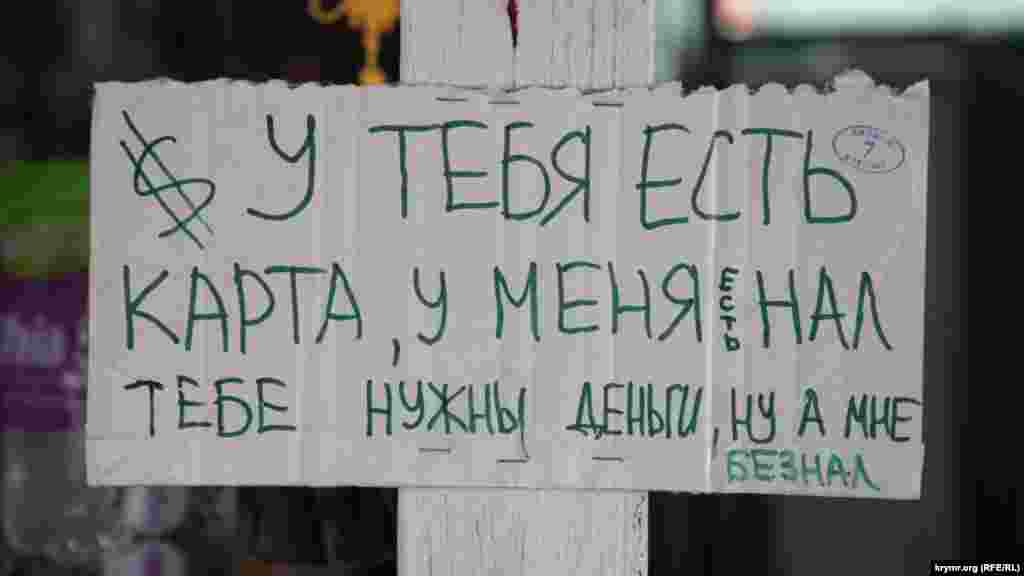 $ У ТЕБЯ ЕСТЬ
КАРТА, У МЕНЯ ЕСТЬ НАЛ
ТЕБЕ НУЖНЫ ДЕНЬГИ, НУ А МНЕ
БЕЗНАЛ
7
krymr.org (RFE/RL)